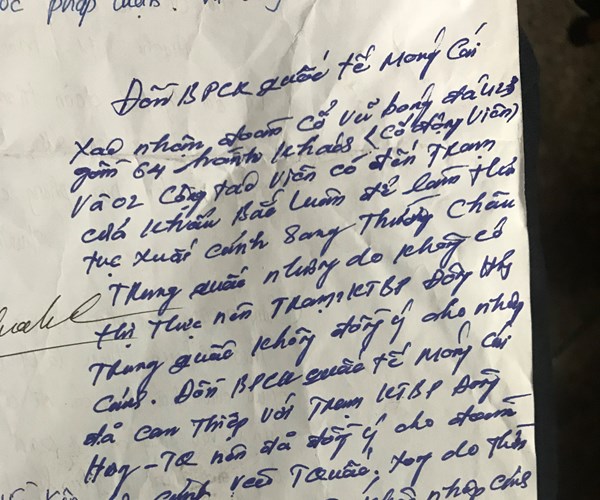 pháp luật.
Đồn BPCK quốc tế Móng Cái
Xác nhận đoàn cổ vũ bóng đá U23
gồm 64 hành khách (Cổ động viên)
và 02 Công tác viên có đến Trạm
cửa khẩu Bắc Luân để làm thủ
tục xuất cảnh sang Thường Châu
Trung quốc nhưng do không có
thị thực nên Trạm KTBP Đông Hưng
Trung quốc không đồng ý cho nhập
cảnh. Đồn BPCK quốc tế Móng Cái
đã can thiệp với Trạm KTBP Đông
Hưng-TQ nên đã đồng ý cho đoàn
cảnh TQuốc.
nhập cảnh